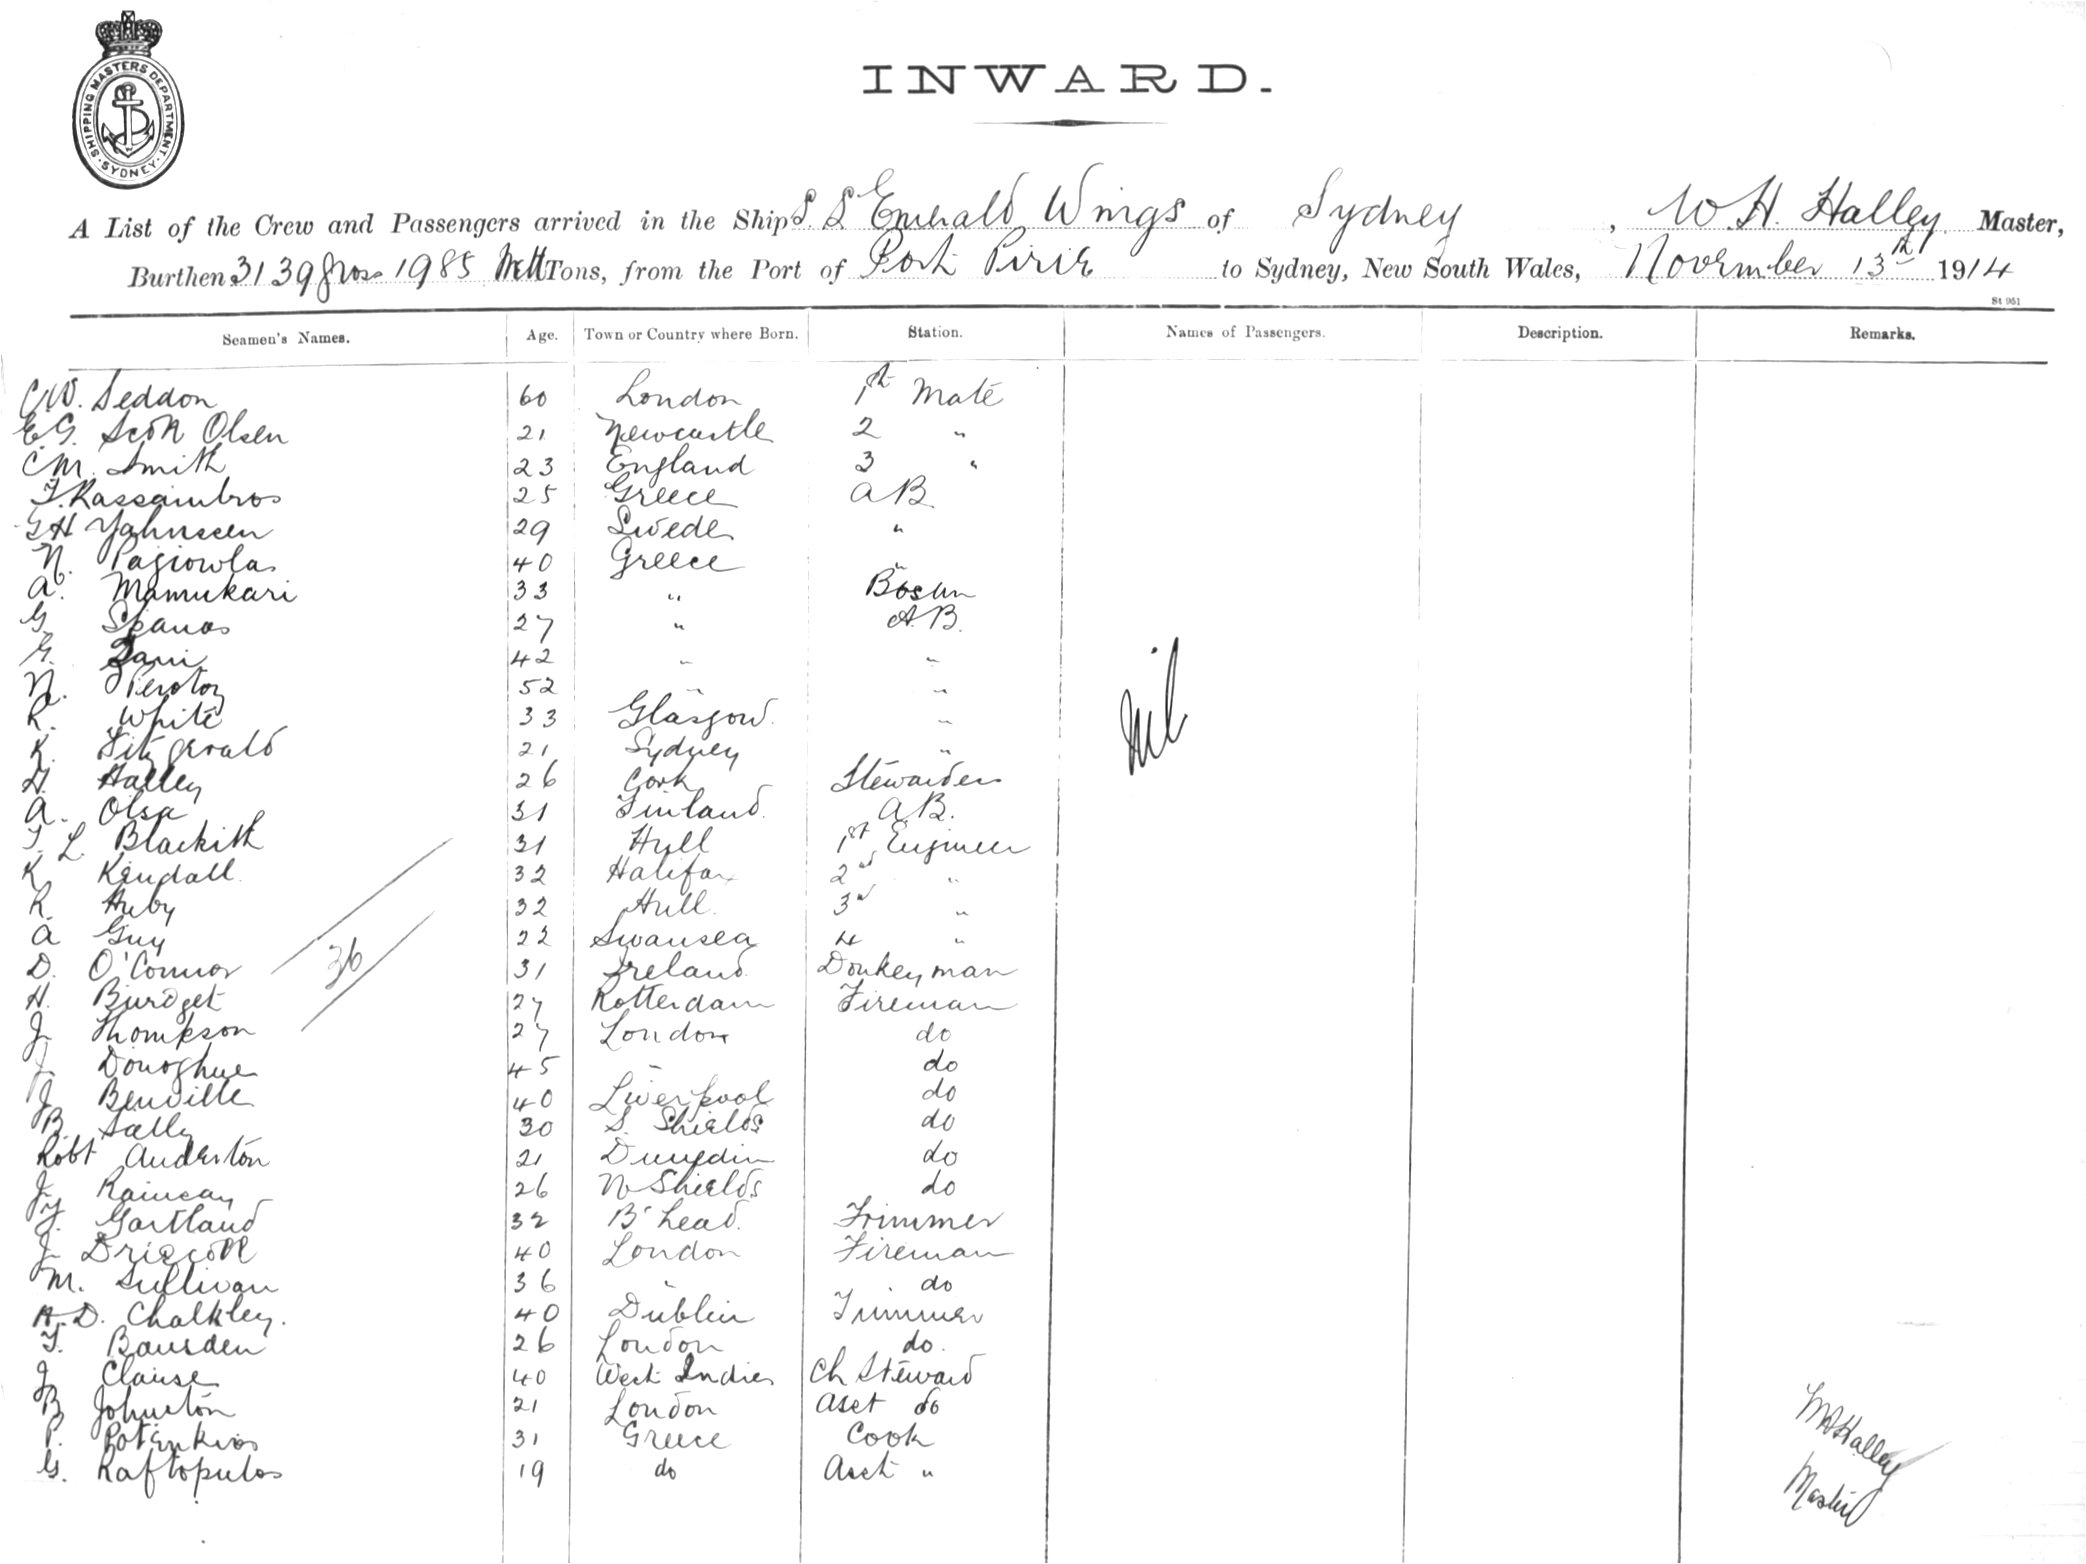 SHIPPING MASTERS DEPARTMENT · SYDNEY ·
INWARD.
A List of the Crew and Passengers arrived in the Ship S.S Emerald Wings of Sydney, W.H. Halley Master,
Burthen 3139 gross 1985 Nett Tons, from the Port of Port Pirie to Sydney, New South Wales, November 13th 1914
St 951
Seamen's Names. Age. Town or Country where Born. Station. Names of Passengers. Description. Remarks.
C.W. Seddon 60 London 1st Mate
E.G. Scott Olsen 21 Newcastle 2 "
C.M. Smith 23 England 3 "
T. Kassimbros 25 Greece AB
G H Yahnseen 29 Swede "
N. Pagiowlas 40 Greece "
A. Mamukari 33 " Bosun
G Spanos 27 " A.B.
G. Zani 42 " "
N. 52 " "
R. White 33 Glasgow. "
K. Fitzgerald 21 Sydney "
H. Halley 26 Cork Stewardess
A. Olsa 31 Finland. AB.
T. L. Blackith 31 Hull 1st Engineer
K Kendall. 32 Halifax 2nd "
R. Huby 32 Hull. 3rd "
A Guy 22 Swansea 4 "
D. O'Connor 31 Ireland. Donkeyman
H. Burdget 27 Rotterdam Fireman
J Thompson 27 London do
J Donoghue 45 " do
J Benville 40 Liverpool do
B. Sally 30 S. Shields do
Robt Anderton 21 Dunedin do
J. Ramsay 26 N Shields do
T. Gartland 32 B'head. Trimmer
J Driscoll 40 London Fireman
M. Sullivan 36 " do
A.D. Chalkley. 40 Dublin Trimmer
T. Bansden 26 London do.
J Clause 40 West Indies Ch Steward
B Johnston 21 London Asst do
P. 31 Greece Cook
G. Raftopulos 19 do Asst "
36
Nil
WHHalley
Master